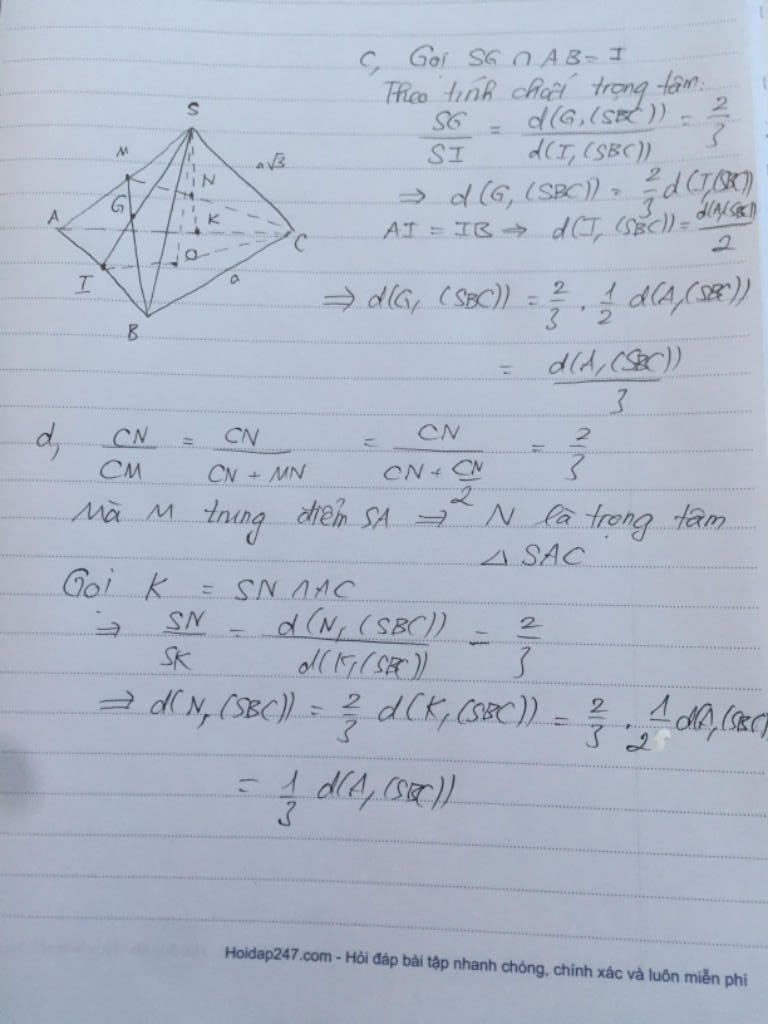 c, Gọi SG ∩ AB = I
Theo tính chất trọng tâm:
SG/SI = d(G,(SBC))/d(I,(SBC)) = 2/3
⇒ d(G,(SBC)) = 2/3 d(I,(SBC))
AI = IB → d(I,(SBC)) = d(A,(SBC))/2
⇒ d(G,(SBC)) = 2/3 . 1/2 d(A,(SBC))
= d(A,(SBC))/3
S
M
a√3
N
G
A
K
C
O
I
a
B
d, CN/CM = CN/(CN + MN) = CN/(CN + CN/2) = 2/3
Mà M trung điểm SA ⇒ N là trọng tâm
△ SAC
Gọi K = SN ∩ AC
⇒ SN/SK = d(N,(SBC))/d(K,(SBC)) = 2/3
⇒ d(N,(SBC)) = 2/3 d(K,(SBC)) = 2/3 . 1/2 d(A,(SBC)
= 1/3 d(A,(SBC))
Hoidap247.com - Hỏi đáp bài tập nhanh chóng, chính xác và luôn miễn phí